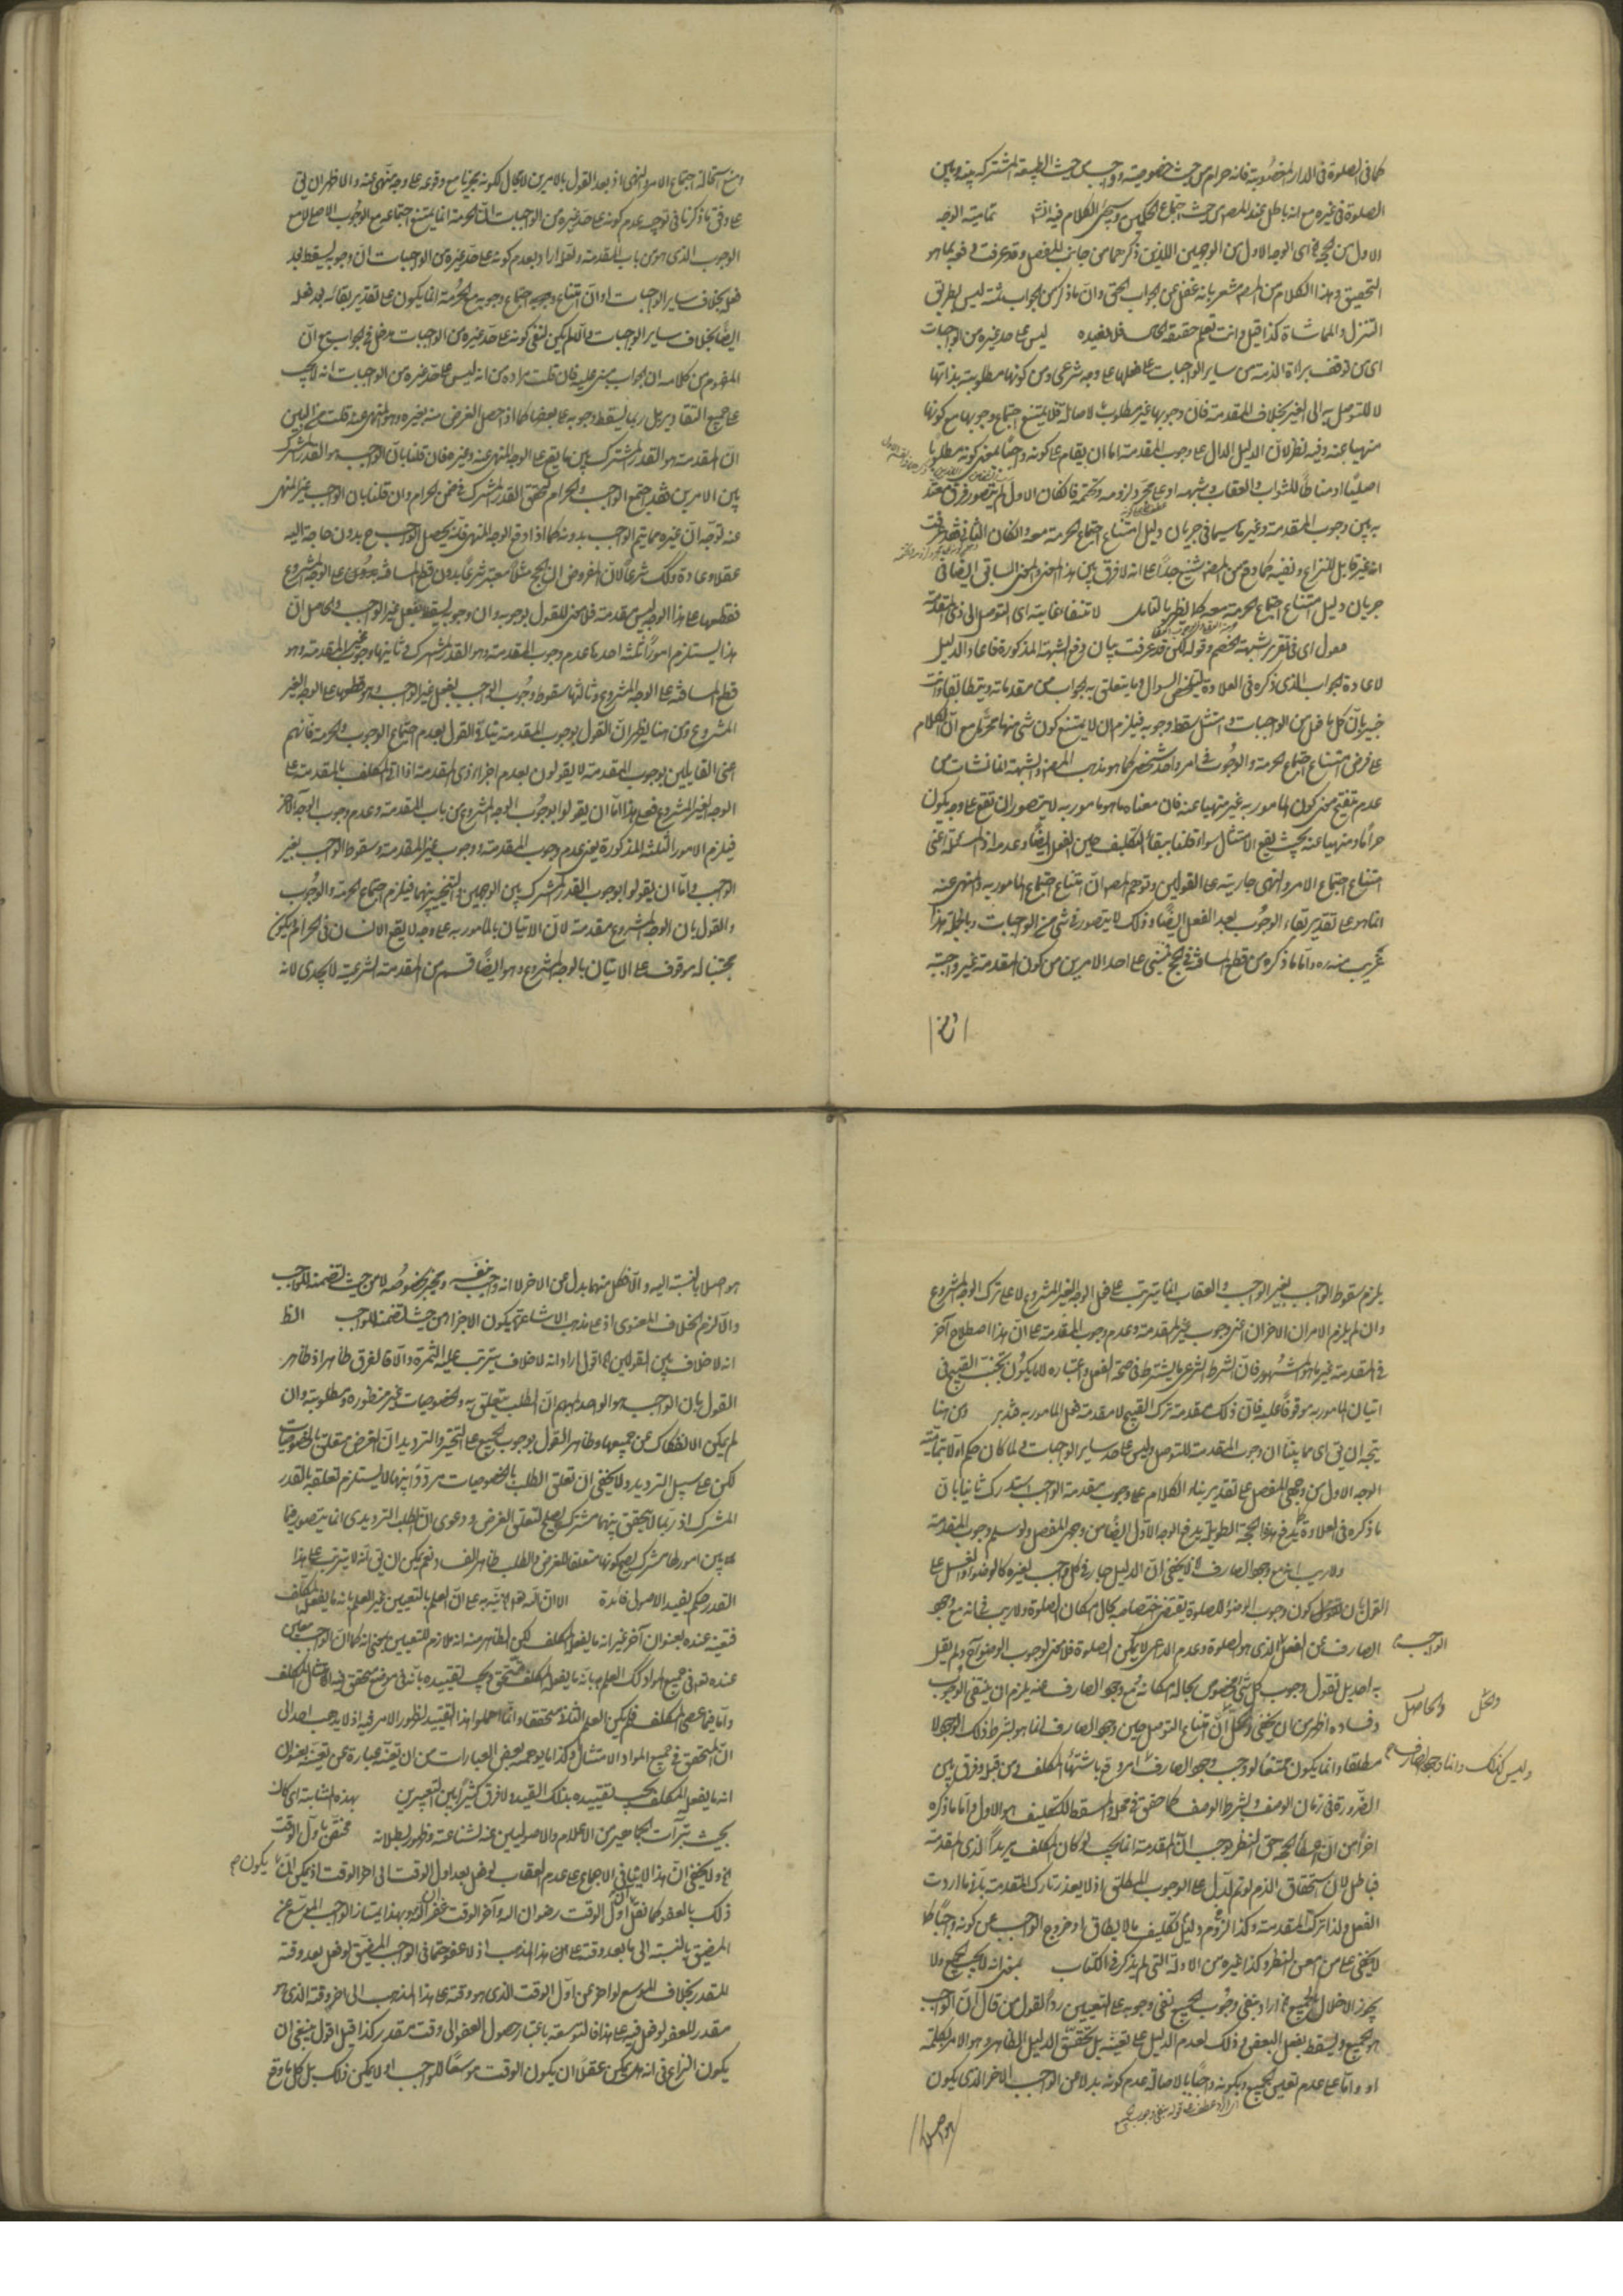 كما فى الصلوة فى الدار المغصوبة فانه حرام من حيث خصوصيته وواجب من حيث الطبيعة المشتركة بينه وبين
الصلوة فى غيره مع انه باطل عند المصر من حيث اجتماع الحكمين وسيجئ الكلام فيه انش تمامية الوجه
الاول من الحجة اى الوجه الاول من الوجهين اللذين ذكرهما من جانب المفصل وقد عرفت
التحقيق وهذا الكلام من المصر مشعر بانه غفل عن الجواب الحق وان ما ذكر من الجواب ليس بطريق
التنزل والمماشاة كذا قيل وانت تعلم حقيقة الحال فلا نعيده ليس على حد غيره من الواجبات
اى من توقف براءة الذمة من ساير الواجبات على فعلها على وجه شرعى ومن كونها مطلوبة بذاتها
لا للتوصل به الى الغير بخلاف المقدمة فان وجوبها غير مطلوب لاصالة فلا يمتنع اجتماع وجوبها مع كونها
منهيا عنه وفيه نظر لان الدليل الدال على وجوب المقدمة اما ان يقام على كونه واجبا بمعنى كونه مطلوبا
اصليا او مناطا للثواب والعقاب وشبهه او على مجرد لزومه وتحتمه فان كان الاول لم يتصور فرق معتد
به بين وجوب المقدمة وغيرها سيما فى جريان دليل امتناع اجتماع الحرمة معه وان كان الثانى فقد عرفت
انه غير قابل للنزاع ونفيه كما وقع من المصر شنيع جدا على انه لا فرق بين هذا المعنى والمعنى السابق ايضا فى
جريان دليل امتناع اجتماع الحرمة معه كما يظهر بالتامل لانتفاء غايته اى التوصل الى ذى المقدمة
معول اى فى تقرير شبهة الخصم وقوله لكن قد عرفت بيان دفع الشبهة المذكورة فاعاد الدليل
لاعادة الجواب الذى ذكره فى العلاوة ليتلخص السوال وما يتعلق به الجواب من مقدماته ويتطابقا وانت
خبير بان كل ما فعل من الواجبات وامتثل سقط وجوبه فيلزم ان لا يمتنع كون شئ منها محرما مع ان الكلام
على فرض امتناع اجتماع الحرمة والوجوب فى امر واحد شخصى كما هو مذهب المصر والشبهة انما نشات من
عدم تنقيح معنى كون المامور به غير منهيا عنه فان معناه ما هو مامور به لا يتصور ان تقع على وجه يكون
حراما ومنهيا عنه بحيث يقع الامتثال سواء قلنا ببقاء التكليف حين الفعل ايضا وعدمه اذ المسئلة اعنى
امتناع اجتماع الامر والنهى جارية على القولين وتوهم المصر ان امتناع اجتماع المامور به والمنهى عنه
انما هو على تقدير بقاء الوجوب بعد الفعل ايضا وذلك لا يتصور فى شئ من الواجبات وبالجملة هذا
غريب منه ره واما ما ذكره من قطع المسافة فى الحج فمبنى على احد الامرين من كون المقدمة غير واجبة
ومنع استحالة اجتماع الامر والنهى اذ بعد القول بالامرين لا مجال لكونه مجزيا مع وقوعه على وجه منهى عنه والاظهر ان يق
على وفق ما ذكرنا فى توجيه عدم كونه على حد غيره من الواجبات ان الحرمة انما يمتنع اجتماعه مع الوجوب الاصلى لا مع
الوجوب الذى هو من باب المقدمة ولعله اراد بعدم كونه على حد غيره من الواجبات ان وجوبه يسقط بعد
فعله بخلاف ساير الواجبات او ان امتناع وجوبه اجتماع وجوبه مع الحرمة انما يكون على تقدير بقائه بعد فعله
ايضا بخلاف ساير الواجبات والا لم يكن لنفى كونه على حد غيره من الواجبات مدخل فى الجواب مع ان
المفهوم من كلامه ان الجواب مبنى عليه فان قلت مراده من انه ليس على حد غيره من الواجبات انه لا يجب
على جميع التقادير بل ربما يسقط وجوبه على بعضها كما اذا حصل الغرض منه بغيره وهو المنهى عنه قلت من البين
ان المقدمة هو القدر المشترك بين ما يقع على الوجه المنهى عنه وغيره فان قلنا بان الواجب هو القدر المشترك
بين الامرين فقد اجتمع الواجب والحرام لتحقق القدر المشترك فى ضمن الحرام وان قلنا بان الواجب غير المنهى
عنه توجه ان غيره مما يتم الواجب بدونه كما اذا وقع الوجه المنهى فانه يحصل الواجب ح بدون حاجة اليه
عقلا وعادة وكذلك شرعا لان المفروض ان الحج مثلا معتبر شرعا بدون قطع المسافة على الوجه المشروع
فقطعها على هذا الوجه ليس مقدمة فلا معنى للقول بوجوبه وان وجوبه يسقط بفعل غير الواجب والحاصل ان
هذا يستلزم امورا ثلثة احدها عدم وجوب المقدمة وهو القدر المشترك وثانيها وجوب غير المقدمة وهو
قطع المسافة على الوجه المشروع وثالثها سقوط وجوب الواجب بفعل غير الواجب وهو قطعها على الوجه الغير
المشروع ومن هنا يظهر ان القول بوجوب المقدمة ينافى القول بعدم اجتماع الوجوب والحرمة فانهم
اعنى القايلين بوجوب المقدمة لا يقولون بعدم اجزاء ذى المقدمة اذا اتى المكلف بالمقدمة على
الوجه الغير المشروع فعلى هذا اما ان يقولوا بوجوب الوجه المشروع من باب المقدمة وعدم وجوب الوجه الاخر
فيلزم الامور الثلثة المذكورة يعنى عدم وجوب المقدمة ووجوب غير المقدمة وسقوط الواجب بغير
الواجب واما ان يقولوا بوجوب القدر المشترك بين الوجهين والتخيير بينهما فيلزم اجتماع الحرمة والوجوب
والقول بان الوجه المشروع مقدمة لان الاتيان بالمامور به على وجه لا يقع الانسان فى الحرام ليكون
مجتنبا له موقوف على الاتيان بالوجه المشروع وهو ايضا قسم من المقدمة الشرعية لا يجدى لانه
يلزم سقوط الواجب بغير الواجب والعقاب انما يترتب على فعل الوجه الغير المشروع لا على ترك الوجه المشروع
وان لم يلزم الامران الاخران اعنى وجوب غير المقدمة وعدم وجوب المقدمة على ان هذا اصطلاح آخر
فى المقدمة غير ما هو المشهور فان الشرط الشرعى ما يشترط فى صحة الفعل واعتباره لا ما يكون تجنب القبيح فى
اتيان المامور به موقوفا عليه فان ذلك مقدمة ترك القبيح لا مقدمة فعل المامور به فتدبر ومن هنا
يتجه ان يق اى مما بينا ان وجوب المقدمة للتوصل وليس على حد ساير الواجبات لما كان حكم اولا بتمامية
الوجه الاول من وجهى المفصل على تقدير بناء الكلام على وجوب مقدمة الواجب استدرك ثانيا بان
ما ذكره فى العلاوة يدفع هذا الحجة الطويلة يدفع الوجه الاول ايضا من وجهى المفصل ولو سلم وجوب المقدمة
ولا ريب انه مع وجود الصارف لا يخفى ان الدليل جار فى كل واجب لغيره كالوضوء والغسل على
القول بان كون وجوب الوضوء للصلوة يقتضى اختصاصه بحال امكان الصلوة ولا ريب فى انه مع وجود
الصارف عن الفعل الذى هو الصلوة وعدم الداعى لا يمكن الصلوة فلا معنى لوجوب الوضوء ح ولم يقل
الواجب
به احد بل نقول وجوب كل شئ مخصوص بحالة امكانه فمع وجود الصارف عنه يلزم ان ينتفى الوجوب
وفساده اظهر من ان يخفى والحل ان امتناع التوصل حين وجود الصارف انما هو بشرط ذلك الوجود لا
والحل والحاصل
مطلقا وانما يكون ممتنعا لو وجب وجود الصارف امر وقع باشتهاء المكلف ومن قبله وفرق بين
وليس كذلك وانما وجود الصارف
الضرورة فى زمان الوصف وبشرط الوصف كما حقق فى محله والمسقط للتكليف هو الاول واما ما ذكره
اخرا من ان اعطاء الحجة حق النظر يوجب ان المقدمة انما يجب لو كان المكلف يريد الذى المقدمة
فباطل لان استحقاق الذم لو تم لدل على الوجوب المطلق اذ لا يعذر تارك المقدمة بانه ما اردت
الفعل ولذا تركت المقدمة وكذا لزوم دليل تكليف ما لا يطاق او خروج الواجب عن كونه واجبا كما
لا يخفى على من امعن النظر وكذا غيره من الادلة التى لم يذكر فى الكتاب بمعنى انه لا يجب الجميع ولا
يجوز الاخلال بالجميع اراد بنفى وجوب الجميع نفى وجوبه على التعيين ردا لقول من قال ان الواجب
هو الجميع ويسقط بفعل البعض وذلك لعدم الدليل على تعينه بل تحقق الدليل الظاهر وهو الامر بكلمة
او واما على عدم تعين الجميع وبكونه واجبا بالاصالة عدم كونه بدلا عن الواجب الاخر الذى يكون
هو اصلا بالنسبة اليه والا فكل منهما بدل عن الاخر لا انه واجب بنفسه ومجز بخصوصه لا من حيث تضمنه للواجب
والا لزم الخلاف المعنوى اذ على مذهب الاشاعرة يكون الاجزاء من حيث تضمنه للواجب الظ
انه لا خلاف بين القولين اقول اراد انه لا خلاف يترتب عليه الثمرة والا فالفرق ظاهر اذ ظاهر
القول بان الواجب هو الواحد المبهم ان الطلب يتعلق به والخصوصيات غير منظورة ومطلوبة وان
لم يمكن الانفكاك عن جميعها وظاهر القول بوجوب الجميع على التخيير والترديد ان الغرض متعلق بالخصوصيات
لكن على سبيل الترديد ولا يخفى ان تعلق الطلب بالخصوصيات مرددا بينها لا يستلزم تعلقه بالقدر
المشترك اذ ربما لا يتحقق بينهما مشترك يصلح لتعلق الغرض ودعوى ان الطلب الترديدى انما يتصور فيما
بين امور لها مشترك يصح كونها متعلقا للغرض والطلب ظاهر الفساد نعم يمكن ان يق انه لا يترتب على هذا
القدر حكم يفيد الاصولى فائدة الا ان نبه به على ان العلم بالتعيين غير العلم بانه ما يفعل المكلف
فتعينه عنده بعنوان آخر غير انه ما يفعل المكلف لكن الظاهر منه انه ملازم للتعيين بمعنى انه كما ان الواجب معين
عنده تعالى فى جميع المواد كذلك العلم بانه ما يفعله المكلف متحقق ويجب تقييده بانه فى موضع تحقق فيه الامتثال المكلف
واما فيما عصى المكلف فلم يكن العلم الثانى متحققا وانما اهملوا هذا التقييد لظهور الامر فيه اذ لا يذهب احد الى
ان المتحقق فى جميع المواد الامتثال وكذا ما يوهمه بعض العبارات من ان تعينه عبارة عن تعينه بعنوان
انه ما يفعل المكلف يجب تقييده بذلك القيد ولا فرق كثيرا بين التعبيرين بهذه المثابة اى كان
بحيث تبرأت الجماهير من الاعلام والاصوليين عنه لشناعته وظهور بطلانه مختص باول الوقت
ولا يخفى ان هذا لا ينافى الاجماع على عدم العقاب لو فعل بعد اول الوقت الى اخر الوقت اذ يمكن ان يكون
ذلك بالعفو كما نقل ان اول الوقت رضوان الله وآخر الوقت غفران الله وبهذا يمتاز الواجب الموسع عن
المضيق بالنسبة الى ما بعد وقته على هذا المذهب اذ لا عفو حتما فى الواجب المضيق لو فعل بعد وقته
المقدر بخلاف الموسع لو اخر عن اول الوقت الذى هو وقته على هذا المذهب الى اخر وقته الذى هو
مقدر للعفو لو فعل فيه على هذا فالتوسعة باعتبار حصول العفو الى وقت مقدر كذا قيل اقول ينبغى ان
يكون النزاع فى انه هل يمكن عقلا ان يكون الوقت موسعا للواجب او لا يمكن ذلك بل كل ما وقع